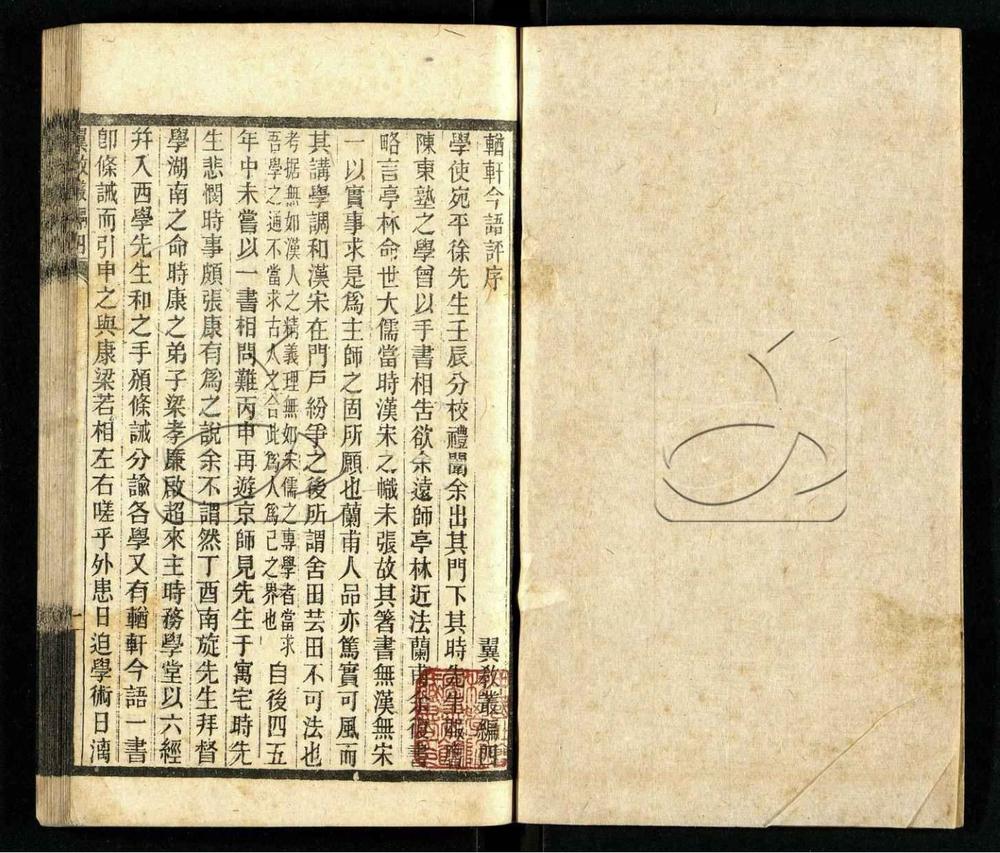 輶軒今語評序　翼敎叢編四
學使宛平徐先生壬辰分校禮闈余出其門下其時先生服膺
陳東塾之學曾以手書相告欲余遠師亭林近法蘭甫余復書
略言亭林命世大儒當時漢宋之幟未張故其箸書無漢無宋
一以實事求是爲主師之固所願也蘭甫人品亦篤實可風而
其講學調和漢宋在門戶紛爭之後所謂舍田芸田不可法也
考据無如漢人之精義理無如宋儒之專學者當求
吾學之通不當求古人之合此爲人爲己之界也
自後四五
年中未嘗以一書相問難丙申再遊京師見先生于寓宅時先
生悲憫時事頗張康有爲之說余不謂然丁酉南旋先生拜督
學湖南之命時康之弟子梁孝廉啟超來主時務學堂以六經
幷入西學先生和之手頒條誡分諭各學又有輶軒今語一書
卽條誡而引申之與康梁若相左右嗟乎外患日迫學術日漓
翼敎叢編四
一